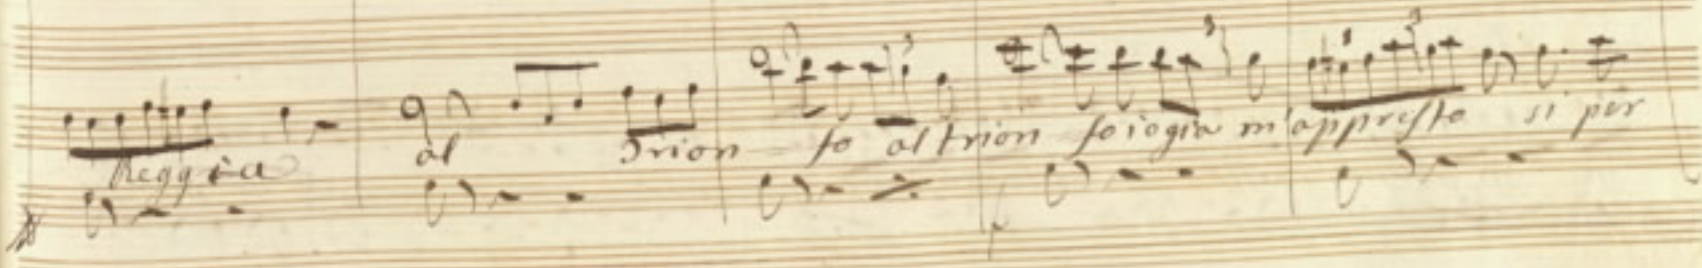 Reggia al Trion fo al trion fo io gia m'appresto si per